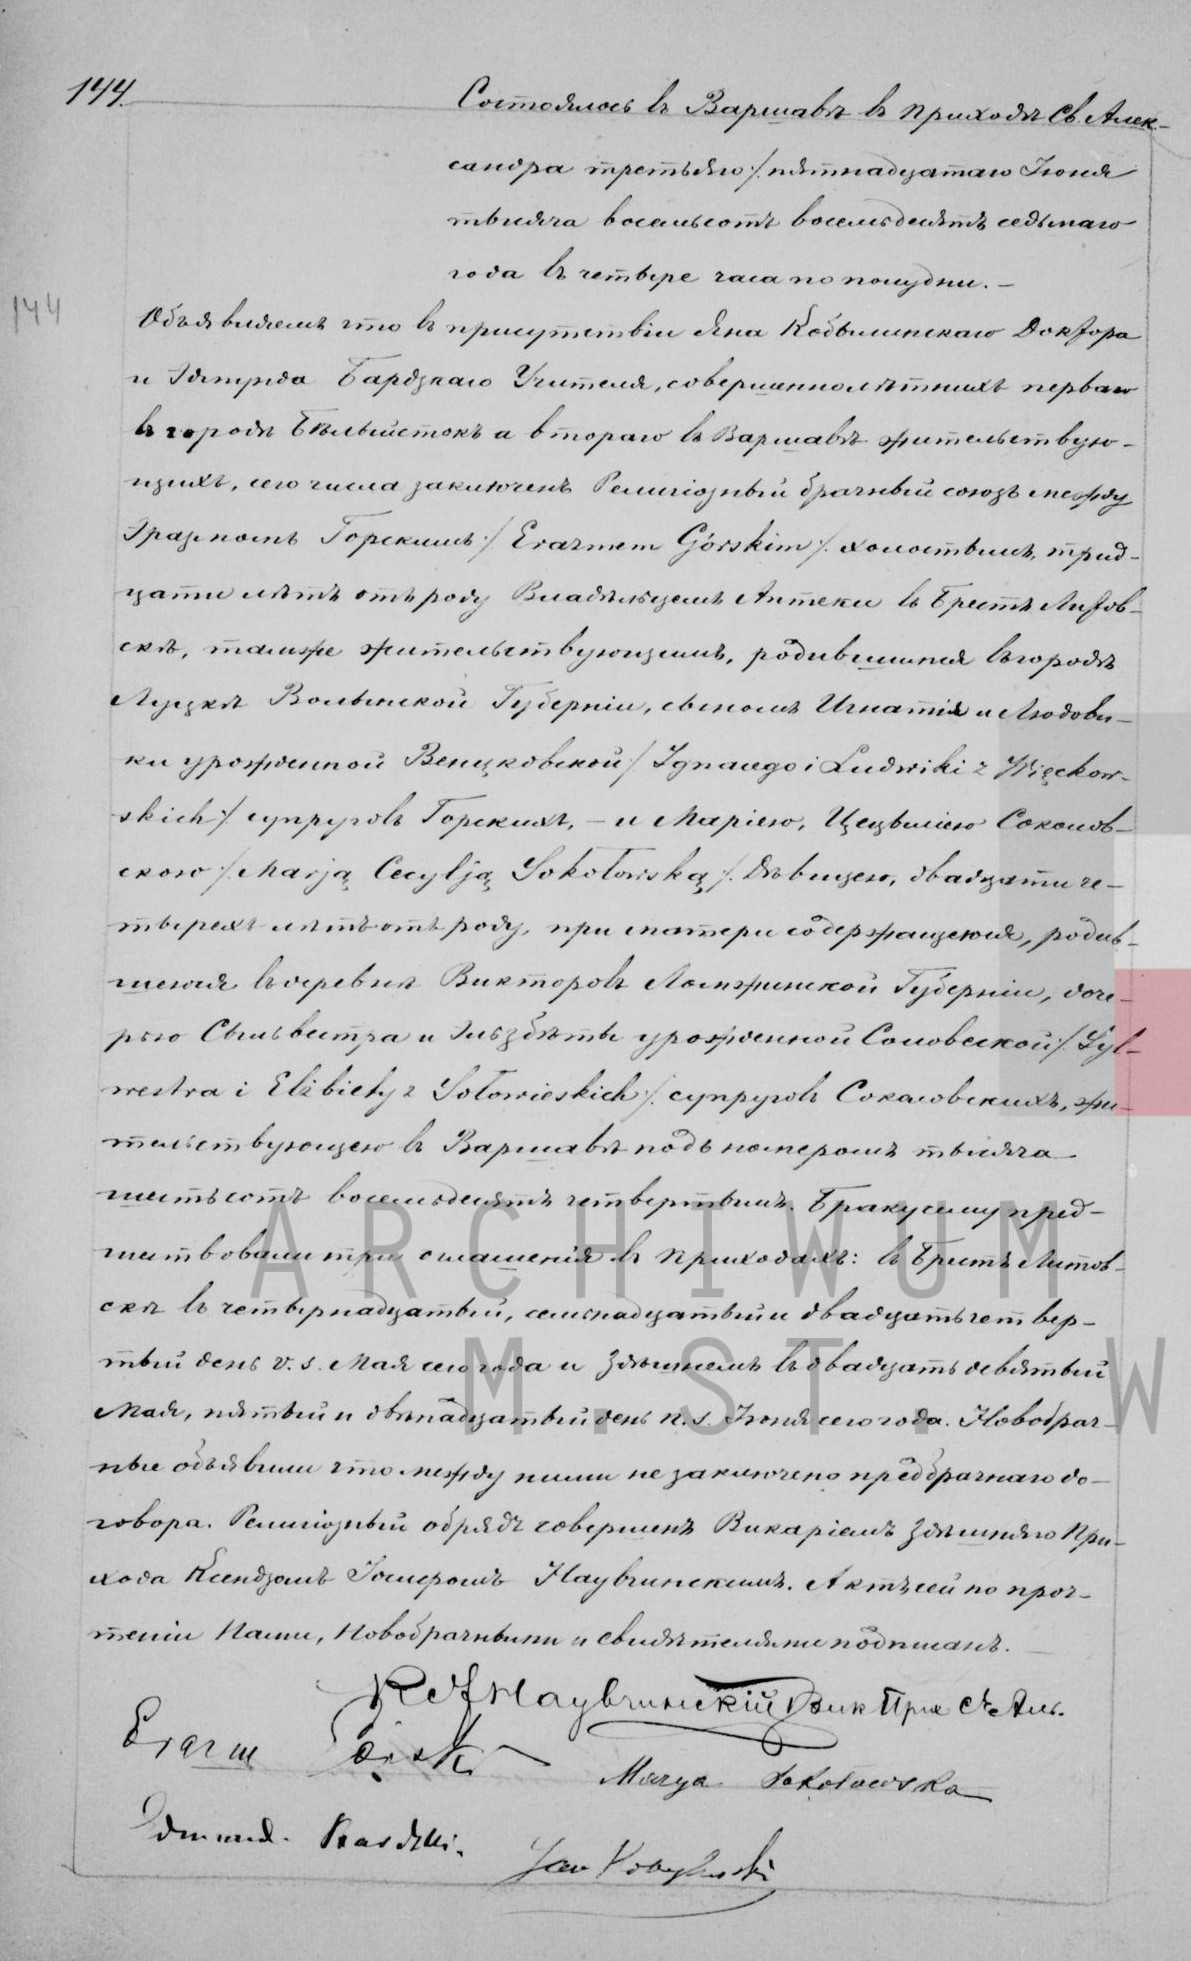 144.
Состоялось въ Варшавѣ въ приходѣ Св. Алек-
сандра третьяго /: пятнадцатаго Іюня
тысяча восемьсотъ восемьдесятъ седьмаго
года въ четыре часа по полудни. —
144
Объявляемъ что въ присутствіи Яна Кобылинскаго Доктора
и Эдмунда Бардзкаго Учителя, совершеннолѣтнихъ перваго
въ городѣ Бѣлыйстокъ а втораго въ Варшавѣ жительствую-
щихъ, сего числа заключенъ Религіозный брачный союзъ между
Эразмомъ Горскимъ /: Erazmem Górskim /: холостымъ, трид-
цати лѣтъ отъ роду Владѣльцемъ Аптеки въ Брестѣ Литов-
скѣ, тамже жительствующемъ, родившимся въ городѣ
Луцкѣ Волынской Губерніи, сыномъ Игнатія и Людови-
ки урожденной Венцковской /: Ignacego i Ludwiki z Więckow-
skich /: супруговъ Горскихъ, — и Маріею, Цецыліею Соколов-
скою /: Marją Cecylją Sokołowską /: дѣвицею, двадцати че-
тырехъ лѣтъ отъ роду, при матери содержащеюся, родив-
шеюся въ деревнѣ Викторовъ Ломжинской Губерніи, доче-
рью Сыльвестра и Эльзбѣты урожденной Соловеской /: Syl-
westra i Elżbiety z Sołowieskich /: супруговъ Соколовскихъ, жи-
тельствующею въ Варшавѣ подъ номеромъ тысяча
шестьсотъ восемьдесятъ четвертымъ. Браку сему пред-
шествовали три оглашенія въ приходахъ: въ Брестѣ Литов-
скѣ въ четырнадцатый, семнадцатый и двадцать четвер-
тый день v. s. Мая сего года и здѣшнемъ въ двадцать девятый
Мая, пятый и двѣнадцатый день n. s. Іюня сего года. Новобрач-
ные объявили что между ними не заключено предбрачнаго до-
говора. Религіозный обрядъ совершенъ Викаріемъ здѣшняго При-
хода Ксендзомъ Наувчинскимъ. Актъ сей по проч-
теніи Нами, Новобрачными и свидѣтелями подписанъ. —
Наувчинскій Вик При Св Ал.
Erazm Górski
Marya Sokołowska
Edmund Bardzki.
Jan Kobyliński
ARCHIWUM
M. ST. W